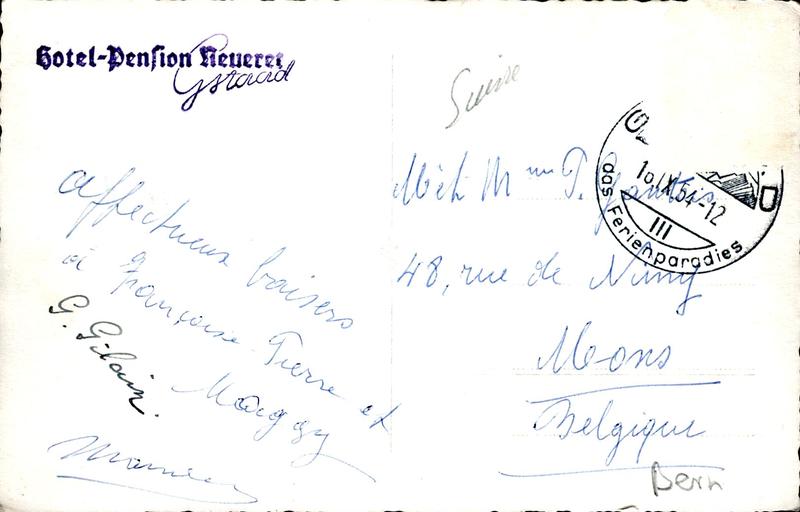 Hotel-Pension Neueret
Gstaad
Suisse
affectueux baisers
à Françoise. Pierre et
Maggy
G. Gilain.
M et Mme P.
48, rue de Nimy
Mons
Belgique
Bern
10.IX.54-12
III
das Ferienparadies